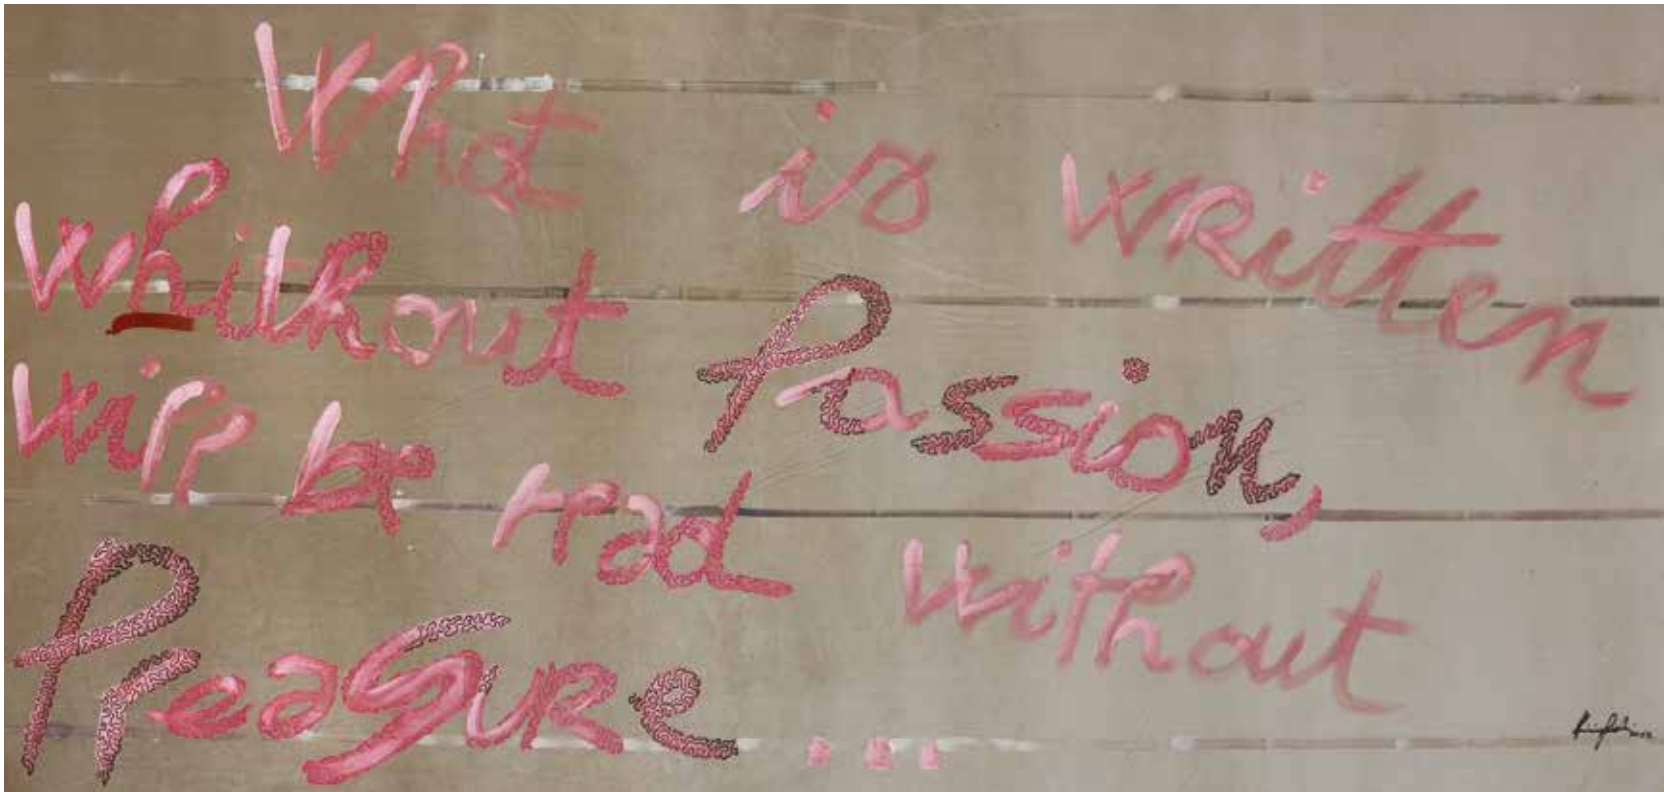 What is written
whithout Passion,
will be read without
Pleasure...